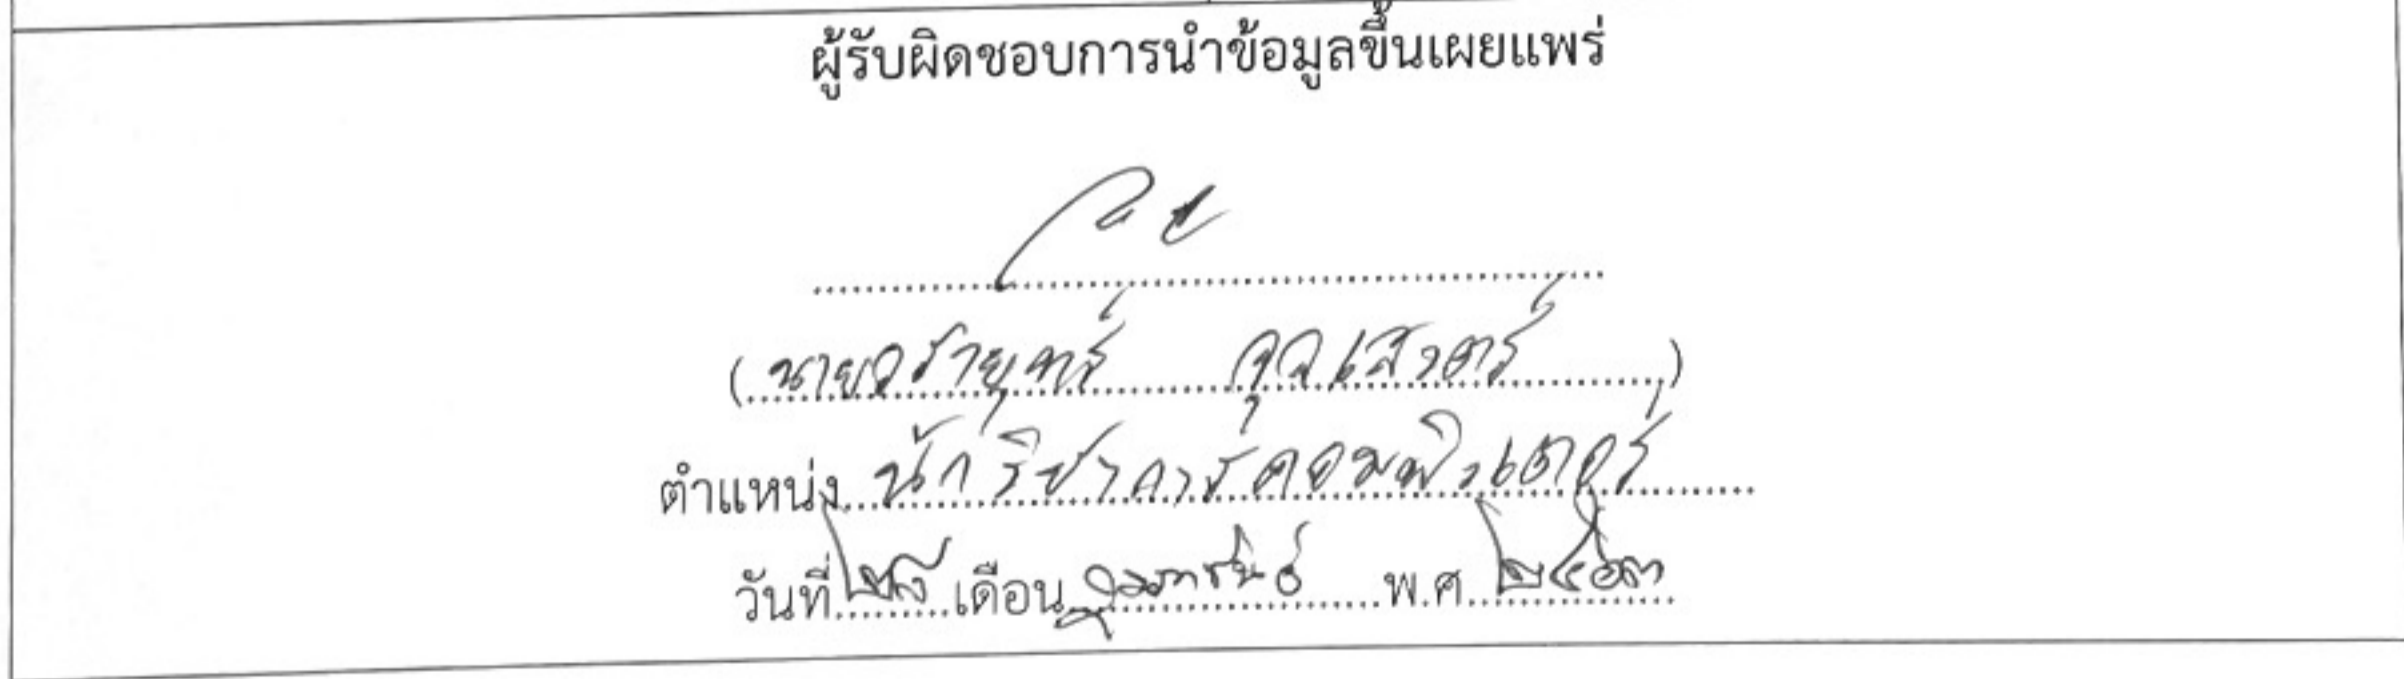 ผู้รับผิดชอบการนำข้อมูลขึ้นเผยแพร่
(นายวรายุทธ์ จุลเสวตร์)
ตำแหน่ง นักวิชาการคอมพิวเตอร์
วันที่ เดือน กุมภาพันธ์ พ.ศ. ๒๕๖๓